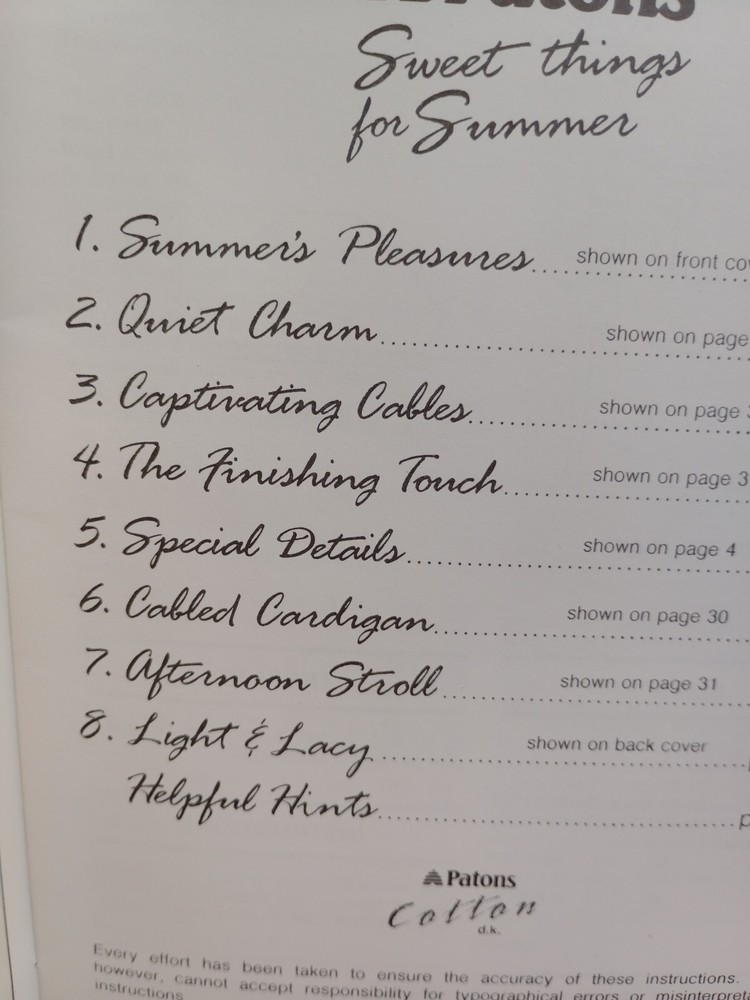 Patons
Sweet things
for Summer
1. Summer's Pleasures shown on front
2. Quiet Charm shown on page
3. Captivating Cables shown on page
4. The Finishing Touch shown on page 3
5. Special Details shown on page 4
6. Cabled Cardigan shown on page 30
7. Afternoon Stroll shown on page 31
8. Light & Lacy shown on back cover
Helpful Hints
Patons
Cotton
d.k.
Every effort has been taken to ensure the accuracy of these instructions.
however, cannot accept responsibility for typographical errors or
instructions